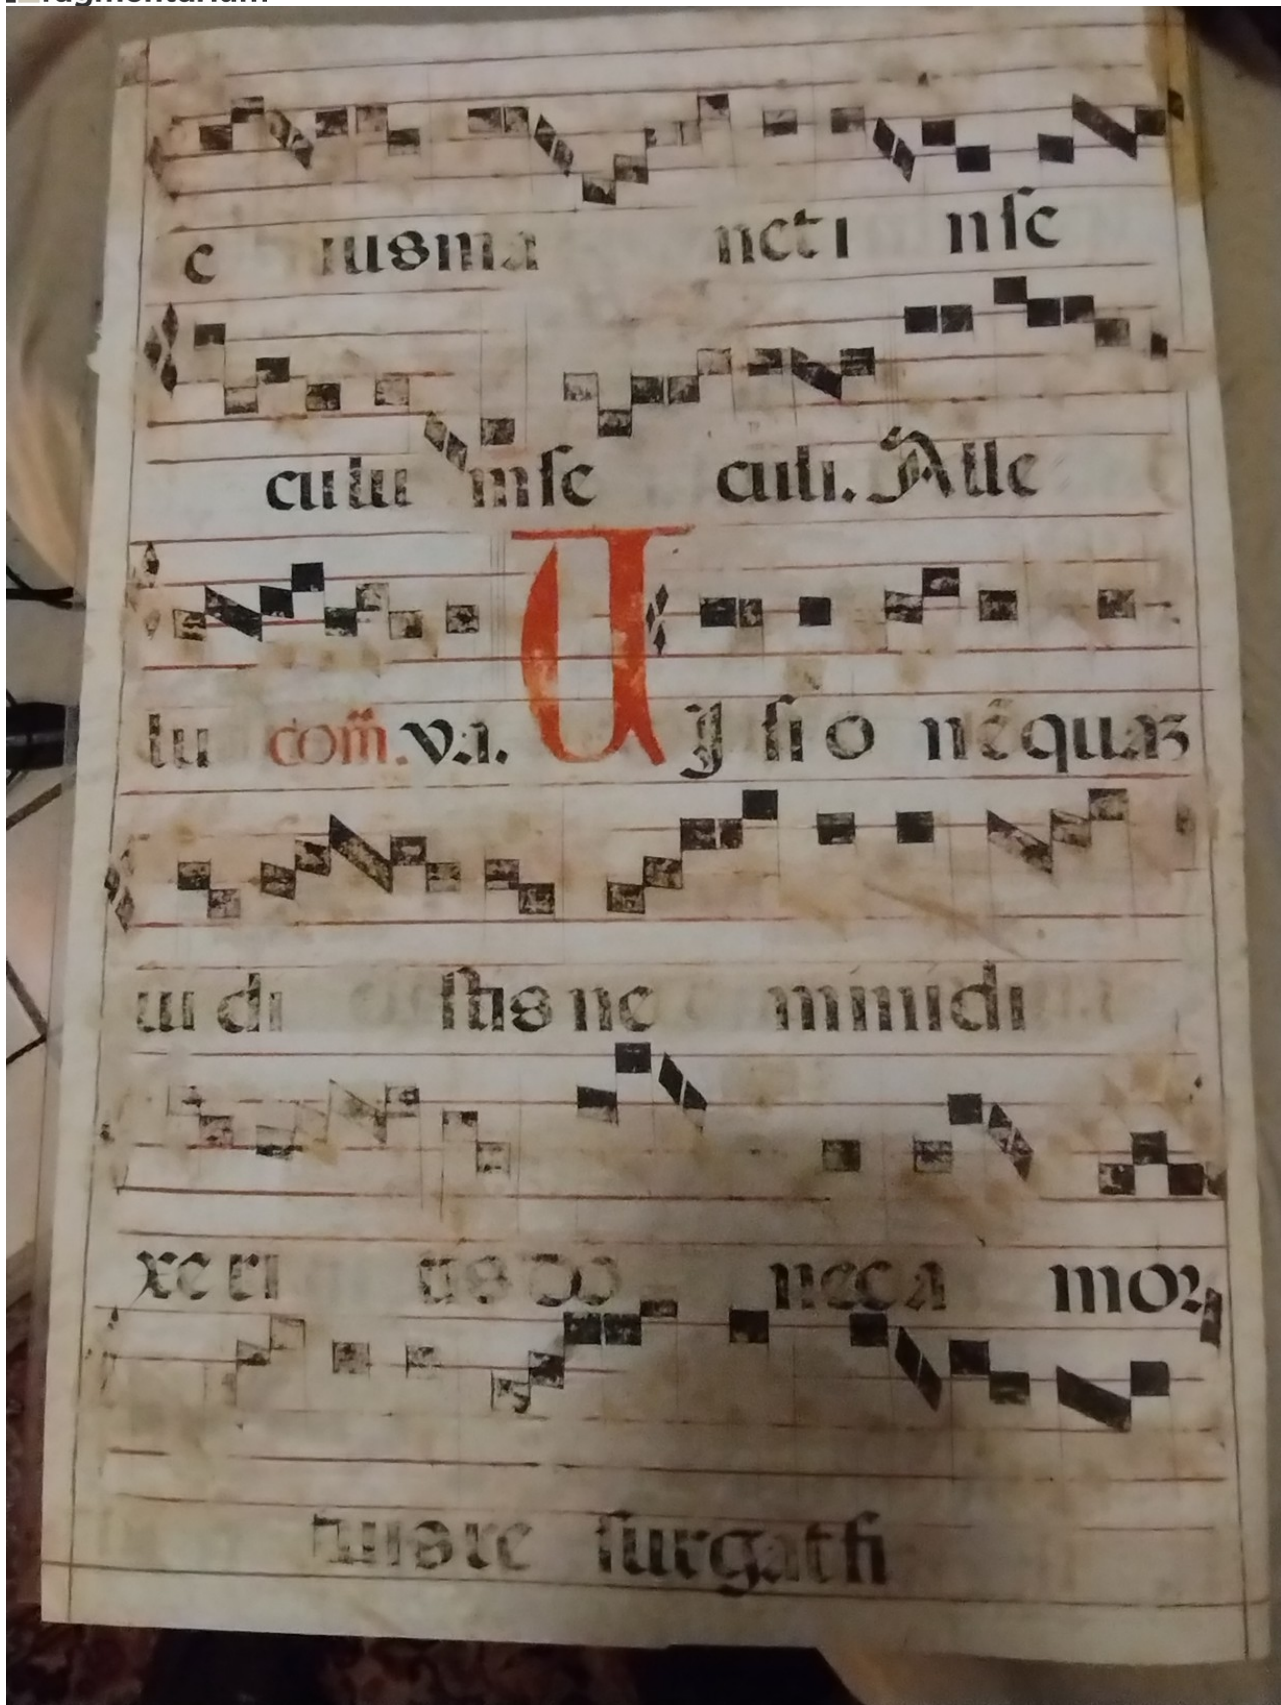 e iusma neti nse
culu inse culi. Alle
lu com̄. v.a. V ysio nē quaz
ui di stis ne mini di
xe ri tis do nec a mor
tuis re surgat fi